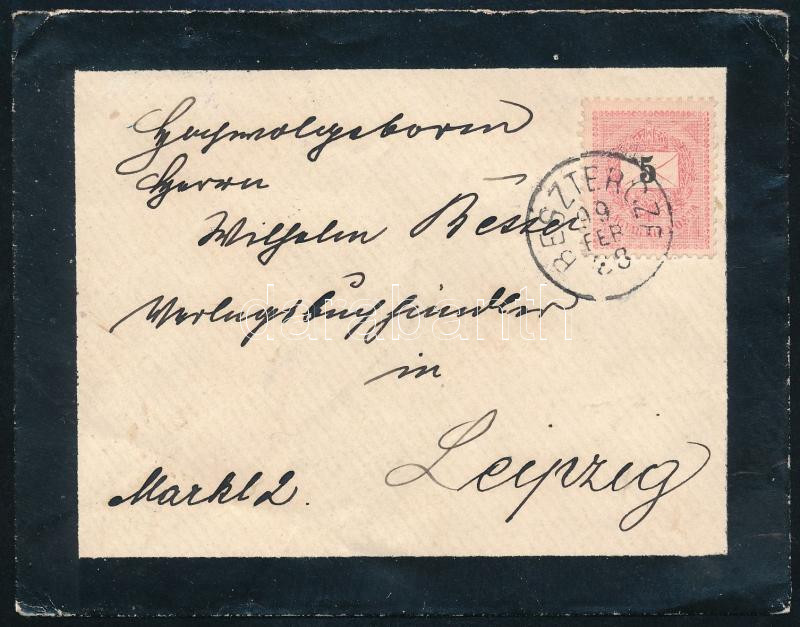 Hochwolgeborn
Herrn
Wilhelm Besser
Verlagsbuchhändler
in
Leipzig
Markt 2.
5
BESZTERCZE
99
FEB
23
darabanth